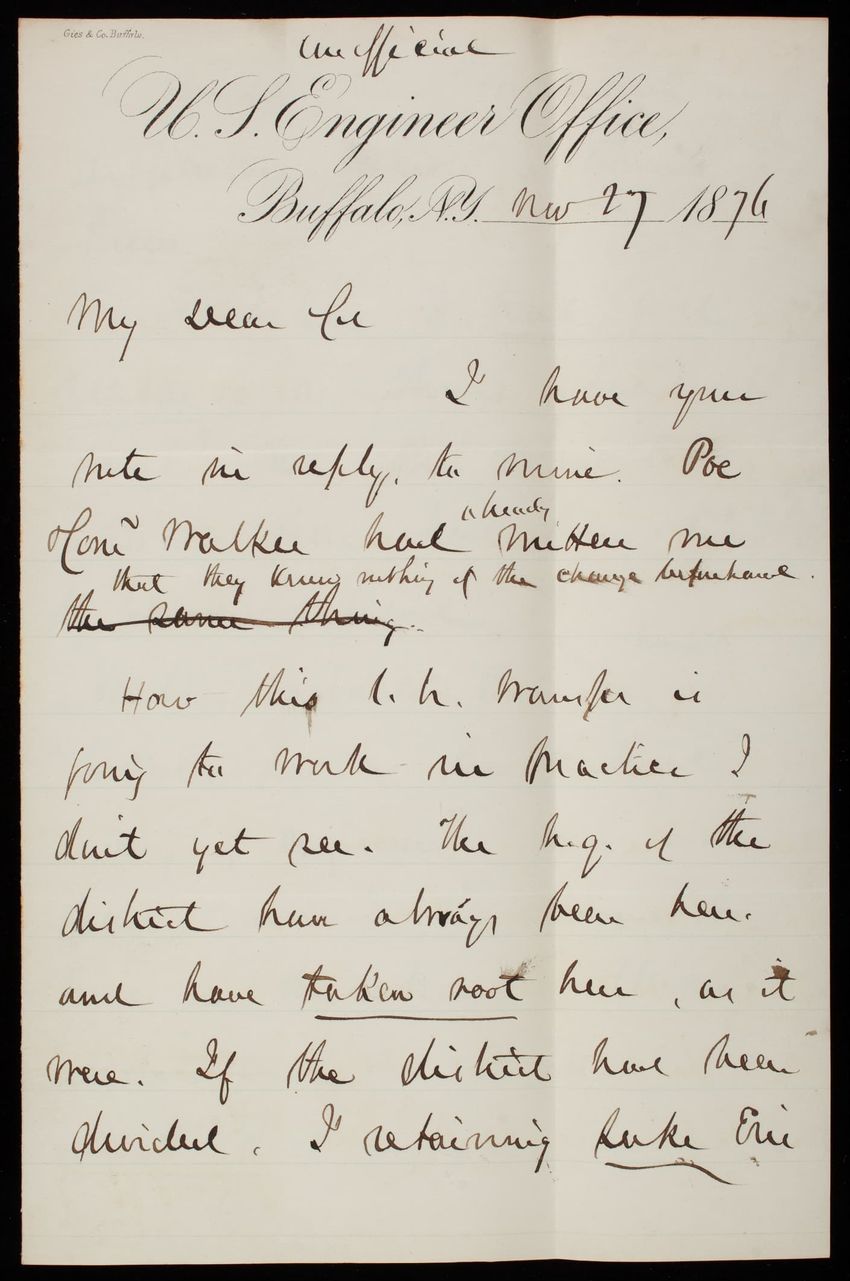 Gies & Co. Buffalo.
unofficial
U. S. Engineer Office,
Buffalo, N.Y. Nov 27 1876
My Dear Col
I have your
note in reply, to mine. Poe
& Walker had already written me
that they knew nothing of the change beforehand.
the same thing.
How this l. h. transfer is
going to work in practice I
don't yet see. The h.q. of the
district have always been here.
and have taken root here, as it
were. If the district had been
divided. I retaining Lake Erie